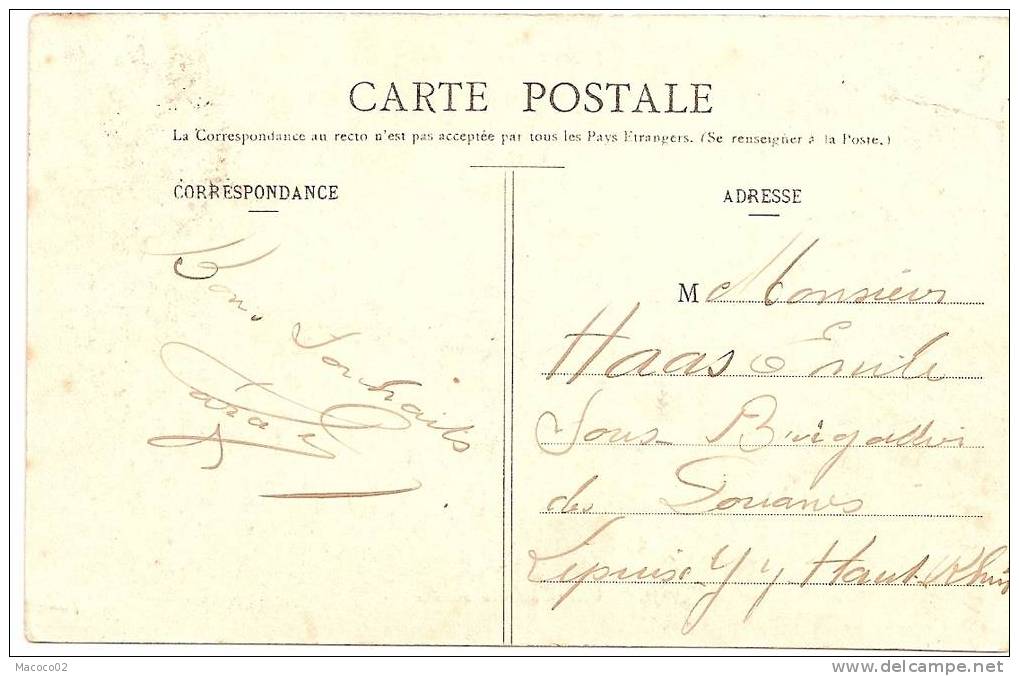 CARTE POSTALE
La Correspondance au recto n'est pas acceptée par tous les Pays Etrangers. (Se renseigner à la Poste.)
CORRESPONDANCE
Bons Souhaits
ADRESSE
M Monsieur
Haas Emile
Sous-Brigadier
des Douanes
Haut-Rhin
Macoco02
www.delcampe.net